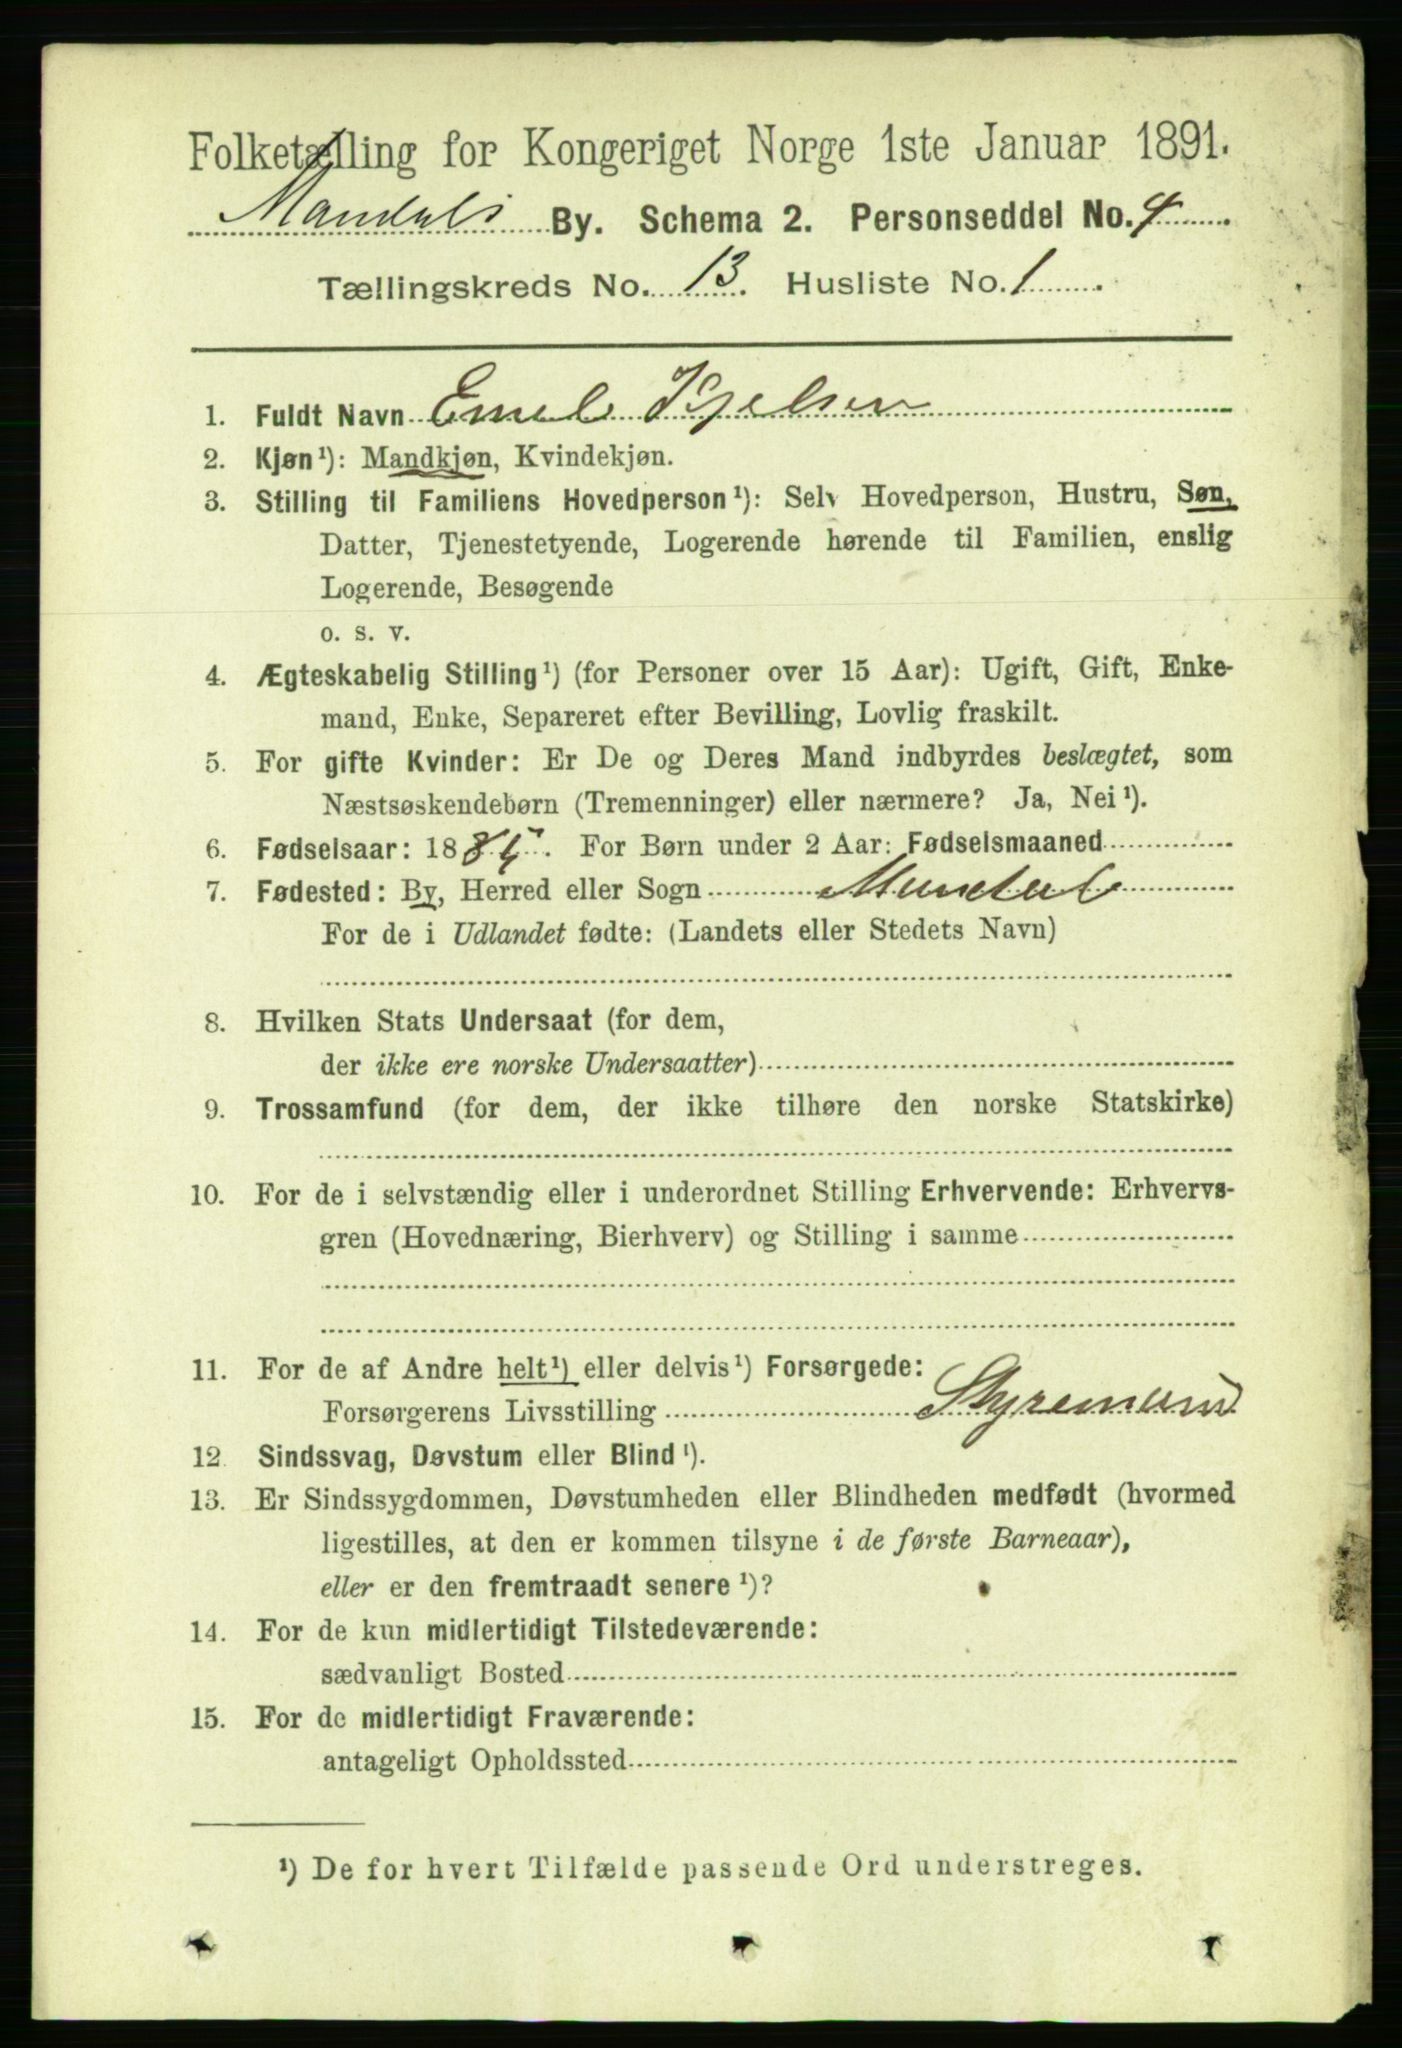 Folketælling for Kongeriget Norge 1ste Januar 1891.
Mandals By. Schema 2. Personseddel No. 4
Tællingskreds No. 13. Husliste No. 1.
1. Fuldt Navn Emil Kjelsen
2. Kjøn¹): Mandkjøn, Kvindekjøn.
3. Stilling til Familiens Hovedperson¹): Selv Hovedperson, Hustru, Søn,
Datter, Tjenestetyende, Logerende hørende til Familien, enslig
Logerende, Besøgende
o. s. v.
4. Ægteskabelig Stilling¹) (for Personer over 15 Aar): Ugift, Gift, Enke-
mand, Enke, Separeret efter Bevilling, Lovlig fraskilt.
5. For gifte Kvinder: Er De og Deres Mand indbyrdes beslægtet, som
Næstsøskendebørn (Tremenninger) eller nærmere? Ja, Nei¹).
6. Fødselsaar: 1885. For Børn under 2 Aar: Fødselsmaaned
7. Fødested: By, Herred eller Sogn Mandal
For de i Udlandet fødte: (Landets eller Stedets Navn)
8. Hvilken Stats Undersaat (for dem,
der ikke ere norske Undersaatter)
9. Trossamfund (for dem, der ikke tilhøre den norske Statskirke)
10. For de i selvstændig eller i underordnet Stilling Erhvervende: Erhvervs-
gren (Hovednæring, Bierhverv) og Stilling i samme
11. For de af Andre helt¹) eller delvis¹) Forsørgede:
Forsørgerens Livsstilling Styremand
12. Sindssvag, Døvstum eller Blind¹).
13. Er Sindssygdommen, Døvstumheden eller Blindheden medfødt (hvormed
ligestilles, at den er kommen tilsyne i de første Barneaar),
eller er den fremtraadt senere¹)?
14. For de kun midlertidigt Tilstedeværende:
sædvanligt Bosted
15. For de midlertidigt Fraværende:
antageligt Opholdssted
¹) De for hvert Tilfælde passende Ord understreges.